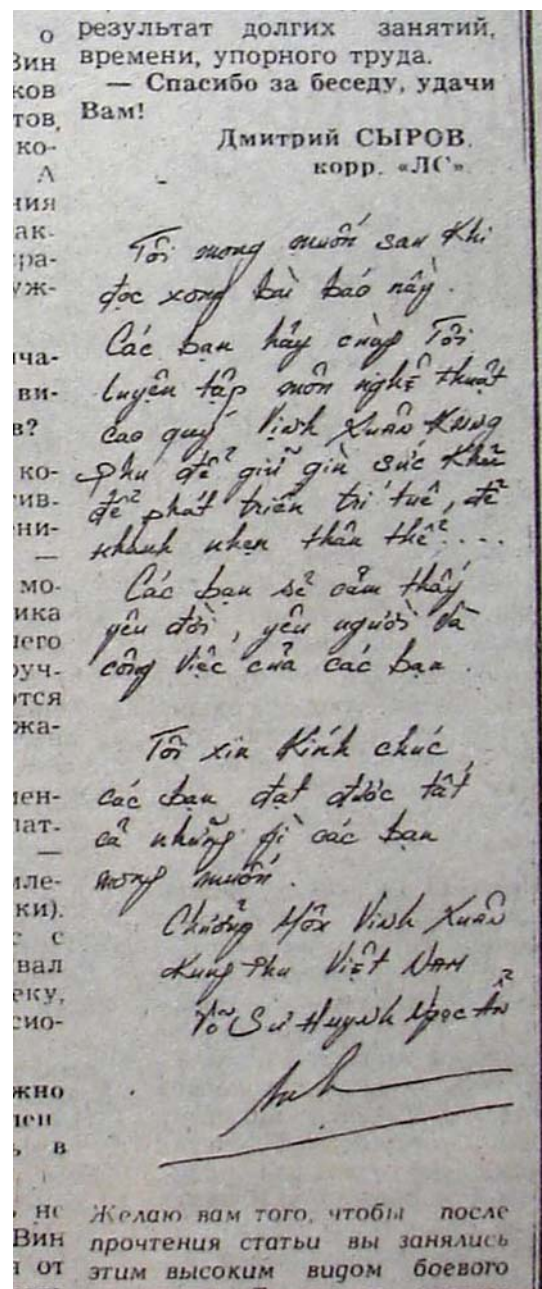 о
Вин
ков
тов,
ко-
А
ния
ак-
ра-
уж-
ча-
ви-
в?
ко-
ив-
ени-
—
мо-
ика
его
руч-
тся
жа-
мен-
лат-
—
мле-
ки).
с с
вал
еку,
сио-
жно
лен
ь в
не
Вин
я от
результат долгих занятий,
времени, упорного труда.
— Спасибо за беседу, удачи
Вам!
Дмитрий СЫРОВ,
корр. «ЛС».
Tôi mong muốn sau khi
đọc xong bài báo này.
Các bạn hãy cùng Tôi
luyện tập môn nghệ thuật
cao quý Vịnh Xuân Kung
phu để giữ gìn sức khỏe
để phát triển trí tuệ, để
nhanh nhẹn thân thể....
Các bạn sẽ cảm thấy
yêu đời, yêu người và
công việc của các bạn.
Tôi xin kính chúc
các bạn đạt được tất
cả những gì các bạn
mong muốn.
Chưởng Môn Vịnh Xuân
Kung Phu Việt Nam
Võ Sư Huỳnh Ngọc Ẩn
Желаю вам того, чтобы после
прочтения статьи вы занялись
этим высоким видом боевого